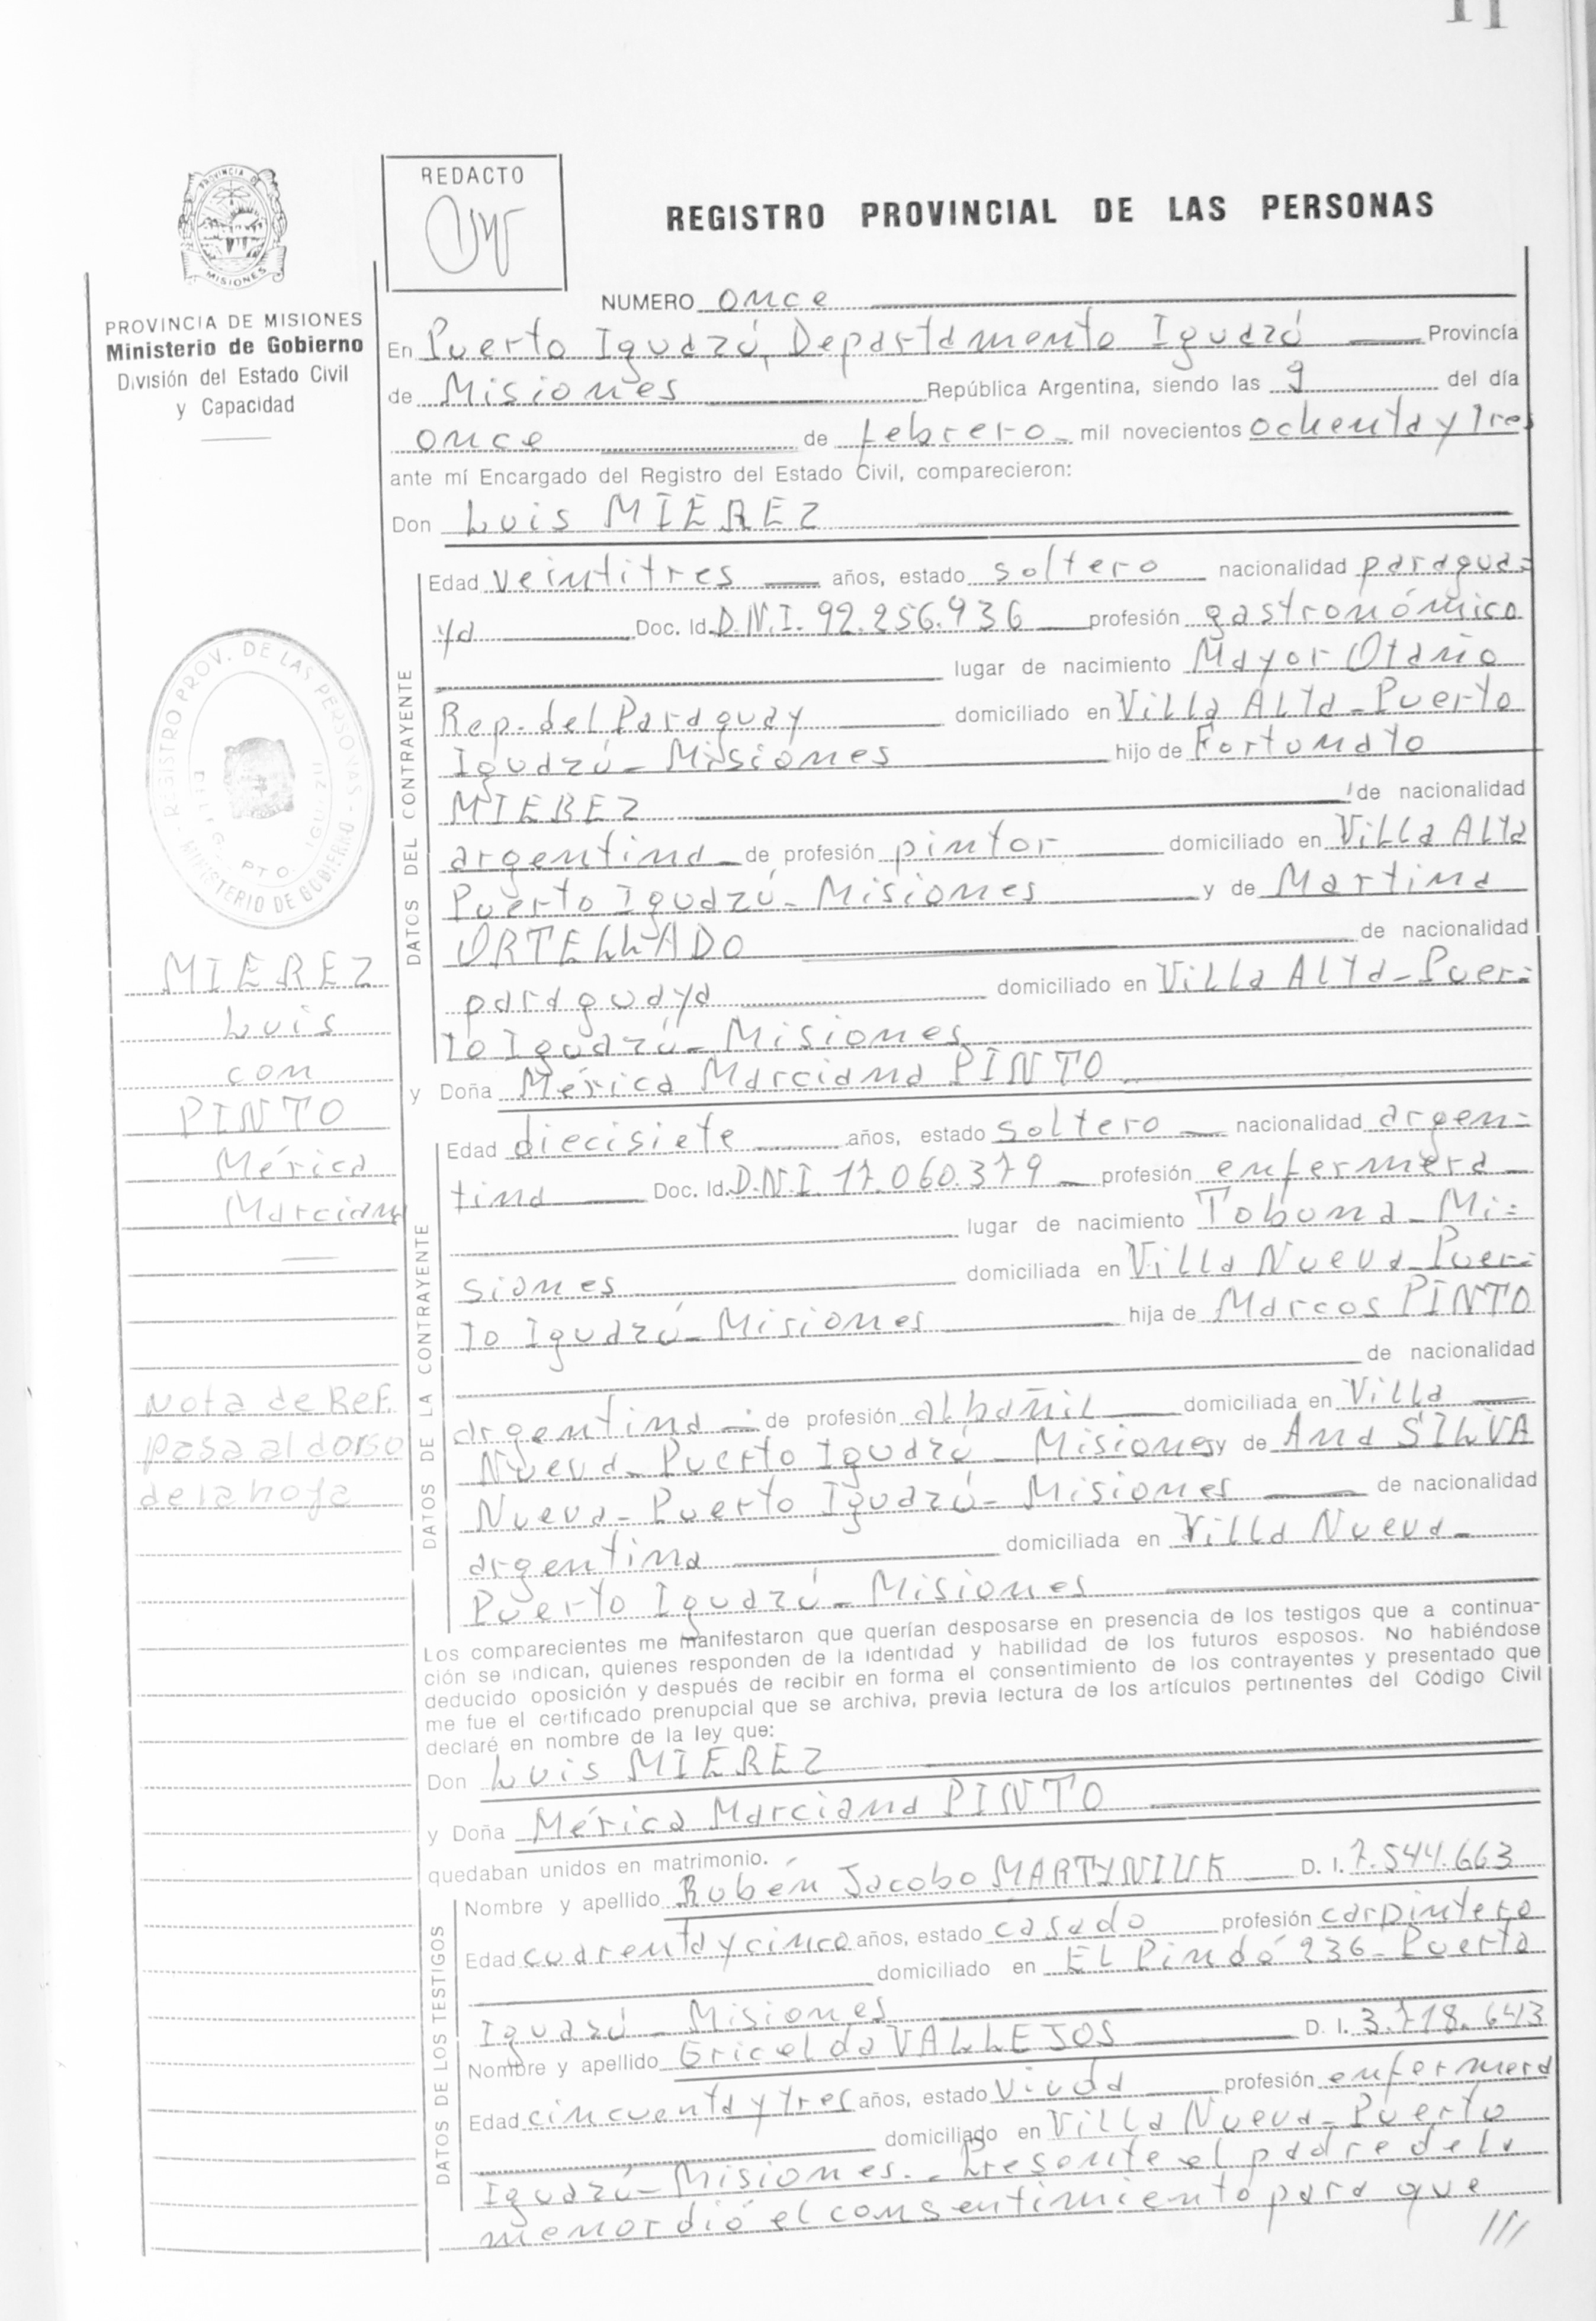 11
REDACTO
REGISTRO PROVINCIAL DE LAS PERSONAS
PROVINCIA DE MISIONES
PROVINCIA DE MISIONES
Ministerio de Gobierno
División del Estado Civil
y Capacidad
NUMERO once
En Puerto Iguazú, Departamento Iguazú Provincia
de Misiones República Argentina, siendo las 9 del día
once de febrero mil novecientos ochenta y tres
ante mí Encargado del Registro del Estado Civil, comparecieron:
Don Luis MIEREZ
DATOS DEL CONTRAYENTE
Edad veintitres años, estado soltero nacionalidad paragua-
ya Doc. Id. D.N.I. 92.256.936 profesión gastronómico
lugar de nacimiento Mayor Otaño
Rep. del Paraguay domiciliado en Villa Alta - Puerto
Iguazú - Misiones hijo de Fortunato
MIEREZ de nacionalidad
argentina de profesión pintor domiciliado en Villa Alta
Puerto Iguazú - Misiones y de Martina
ORTELLADO de nacionalidad
paraguaya domiciliado en Villa Alta - Puer-
to Iguazú - Misiones
y Doña Mérica Marciana PINTO
REGISTRO PROV. DE LAS PERSONAS - MINISTERIO DE GOBIERNO
DELEG. PTO. IGUAZU
MIEREZ
Luis
con
PINTO
Mérica
Marciana
Nota de Ref.
pasa al dorso
de la hoja
DATOS DE LA CONTRAYENTE
Edad diecisiete años, estado soltero nacionalidad argen-
tina Doc. Id. D.N.I. 17.060.379 profesión enfermera
lugar de nacimiento Tobuna - Mi-
siones domiciliada en Villa Nueva - Puer-
to Iguazú - Misiones hija de Marcos PINTO
de nacionalidad
argentina de profesión albañil domiciliada en Villa
Nueva - Puerto Iguazú - Misiones y de Ana SILVA
Nueva - Puerto Iguazú - Misiones de nacionalidad
argentina domiciliada en Villa Nueva -
Puerto Iguazú - Misiones
Los comparecientes me manifestaron que querían desposarse en presencia de los testigos que a continua-
ción se indican, quienes responden de la identidad y habilidad de los futuros esposos. No habiéndose
deducido oposición y después de recibir en forma el consentimiento de los contrayentes y presentado que
me fue el certificado prenupcial que se archiva, previa lectura de los artículos pertinentes del Código Civil
declaré en nombre de la ley que:
Don Luis MIEREZ
y Doña Mérica Marciana PINTO
quedaban unidos en matrimonio.
DATOS DE LOS TESTIGOS
Nombre y apellido Rubén Jacobo MARTYNIUK D. I. 7.544.663
Edad cuarenta y cinco años, estado casado profesión carpintero
domiciliado en El Pindó 236 - Puerto
Iguazú - Misiones
DATOS DE LOS TESTIGOS
Nombre y apellido Gricelda VALLEJOS D. I. 3.718.643
Edad cincuenta y tres años, estado viuda profesión enfermera
domiciliado en Villa Nueva - Puerto
Iguazú - Misiones. - Presente el padre de la
menor dió el consentimiento para que
///